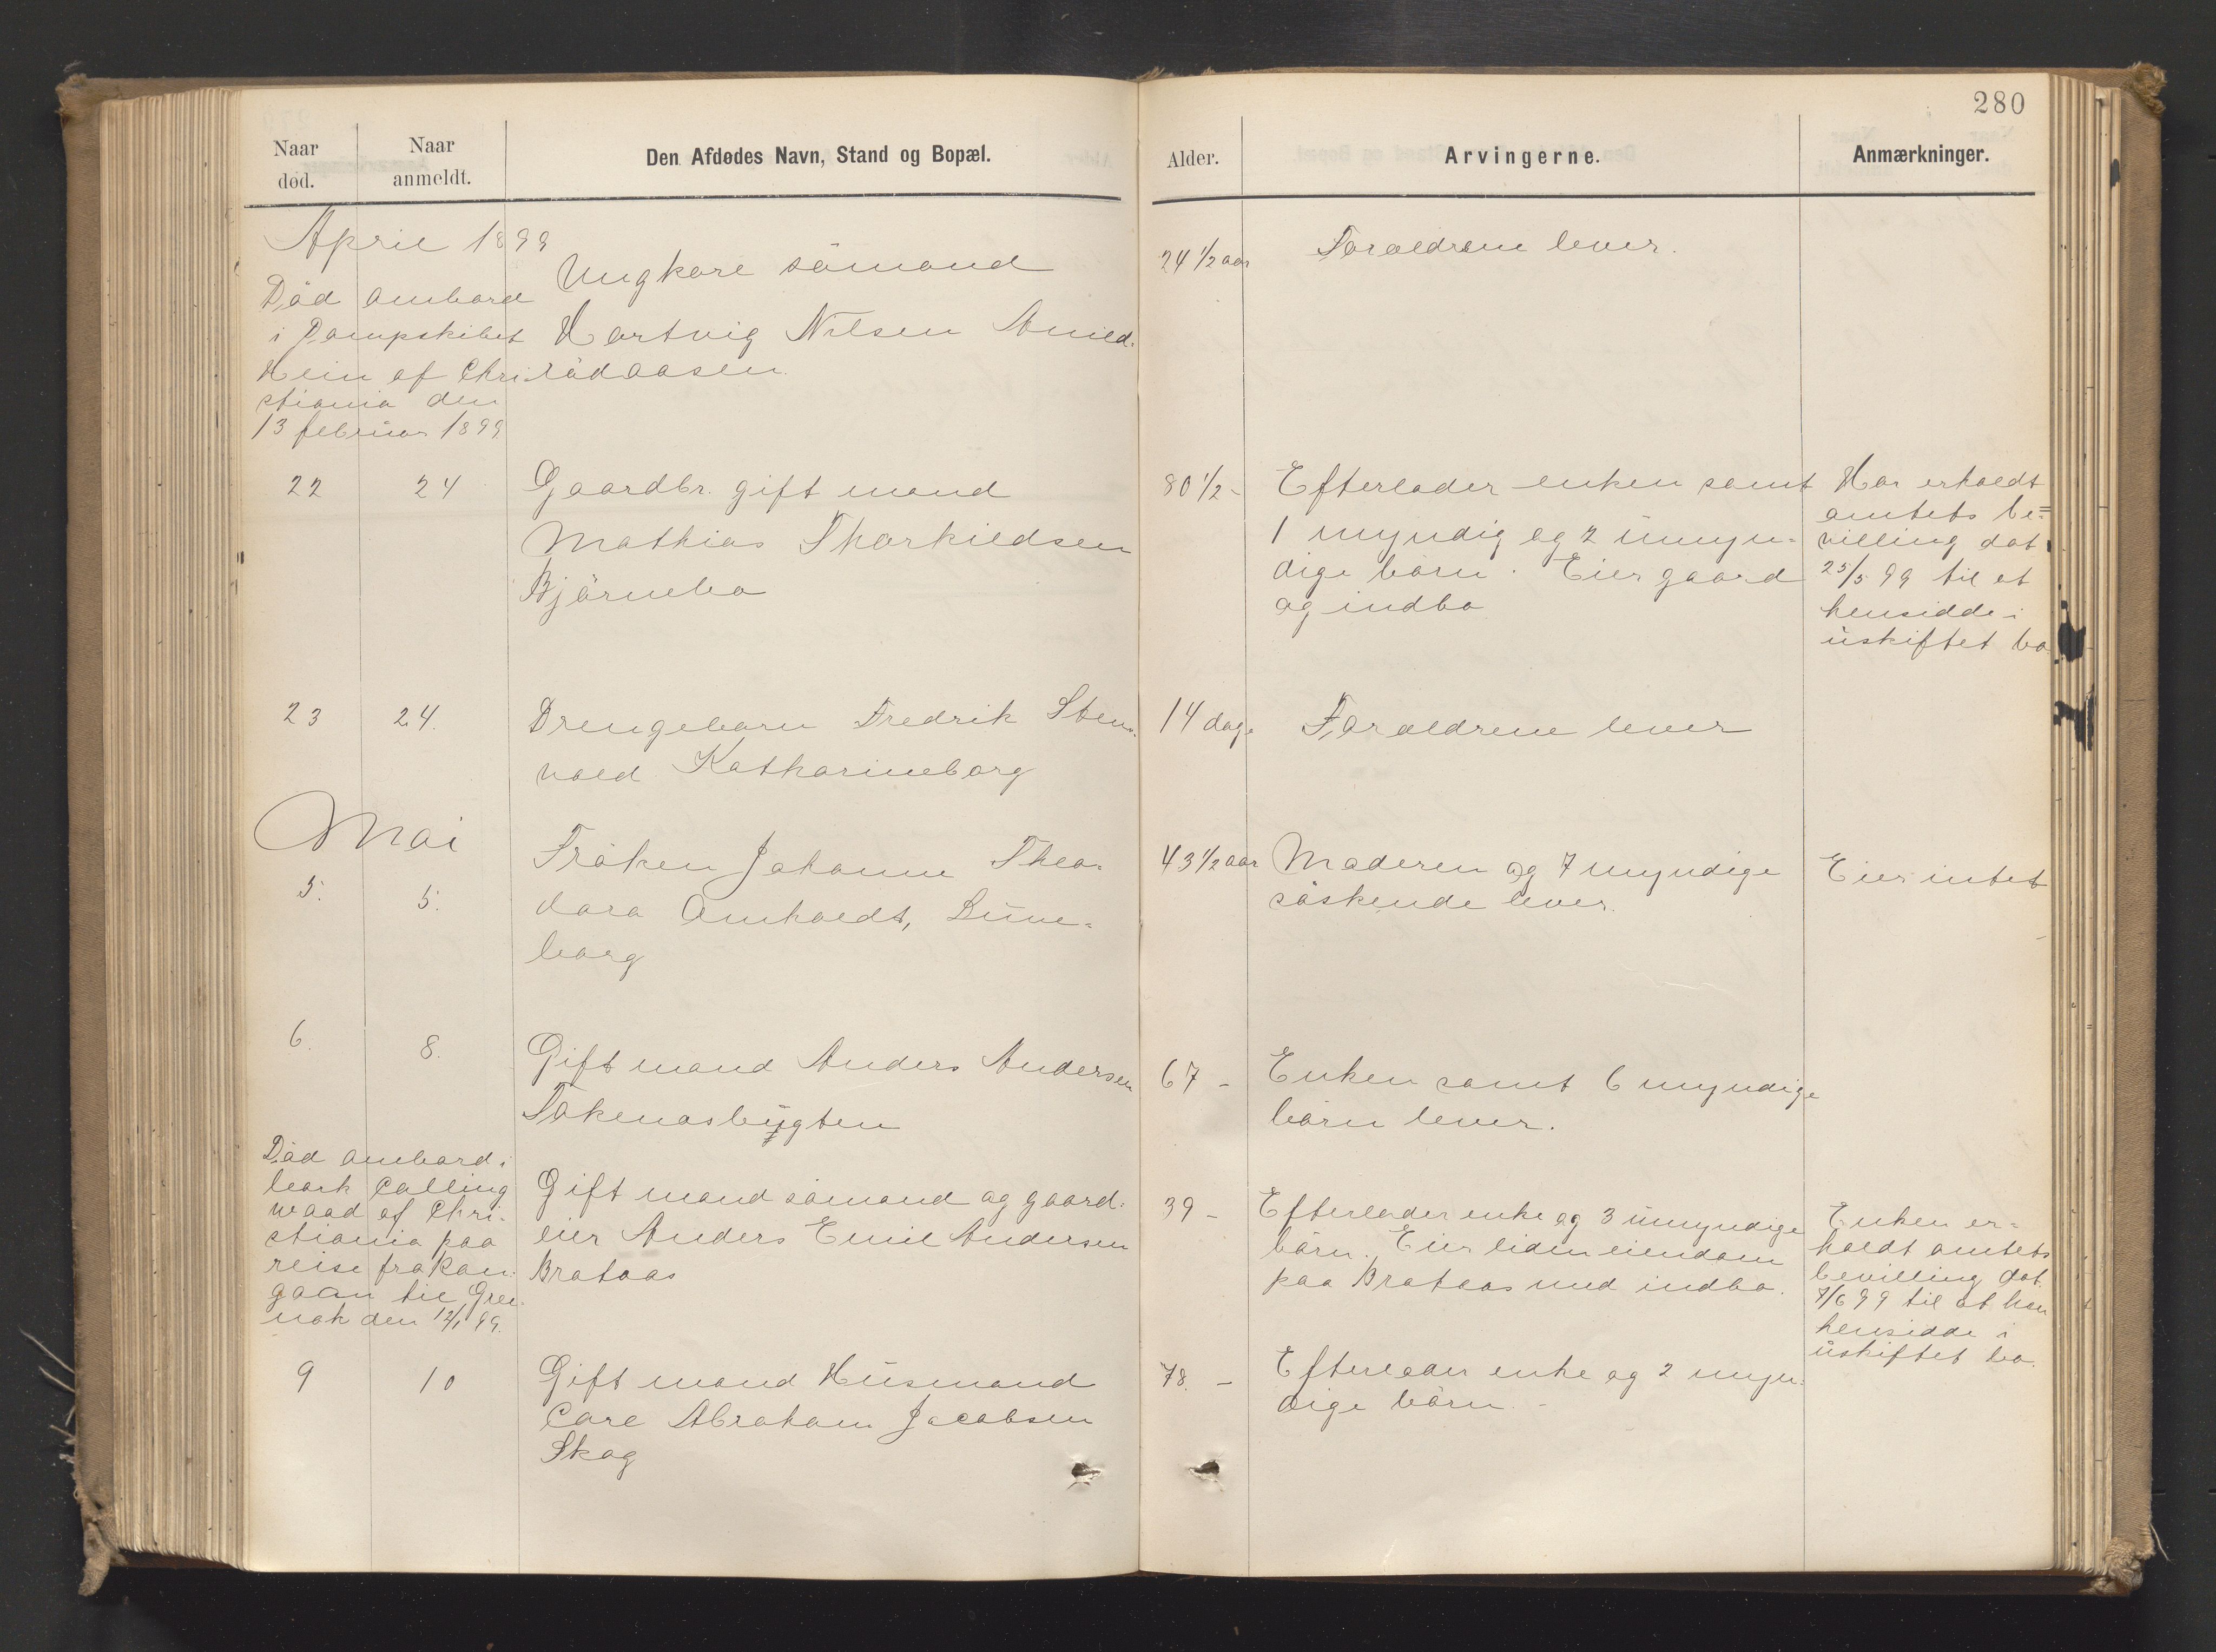 280
Naar død.
Naar anmeldt.
Den Afdødes Navn, Stand og Bopæl.
Alder.
Arvingerne.
Anmærkninger.
April 1899
Död ombord
i Dampskibet
Hein af Chri
stiania den
13 februar 1899
Ungkarl sömand
Hartvig Nilsen Arnild.
rödaasen.
24 1/2 aar
Forældrene lever.
22
24
Gaardbr. gift mand
Mathias Thorkildsen
Björnebo
80 1/2 -
Efterlader enken samt
1 myndig og 2 umyn=
dige börn. Eier gaard
og indbo
Har erholdt
amtets be=
villing dat
25/5 99 til at
hensidde i
uskiftet bo.
23
24.
Drengebarn Fredrik Sten.
vold Katharineborg
14 dage
Forældrene lever
Mai
5.
5.
Fröken Johanne Theo.
dora Omholdt, Lune=
borg
43 1/2 aar
Moderen og 7 myndige
söskende lever.
Eier intet
6.
8.
Gift mand Anders Andersen
Tokenasbugten
67 -
Enken samt 6 myndige
börn lever.
Död ombord i
bark Colling
wood af Chri-
stiania paa
reise fra
til Gree.
nok den 12/1 99.
Gift mand sömand og gaard.
eier Anders Emil Andersen
Brataas
39 -
Efterlader enke og 3 umyndige
börn. Eier liden eiendom
paa Brataas med indbo.
Enken er=
holdt amtets
bevilling dat.
7/6 99 til at hun
hensidde i
uskiftet bo.
9
10
Gift mand Husmand
Carl Abraham Jacobsen
Skog
78. -
Efterlader enke og 2 myn.
dige börn. -